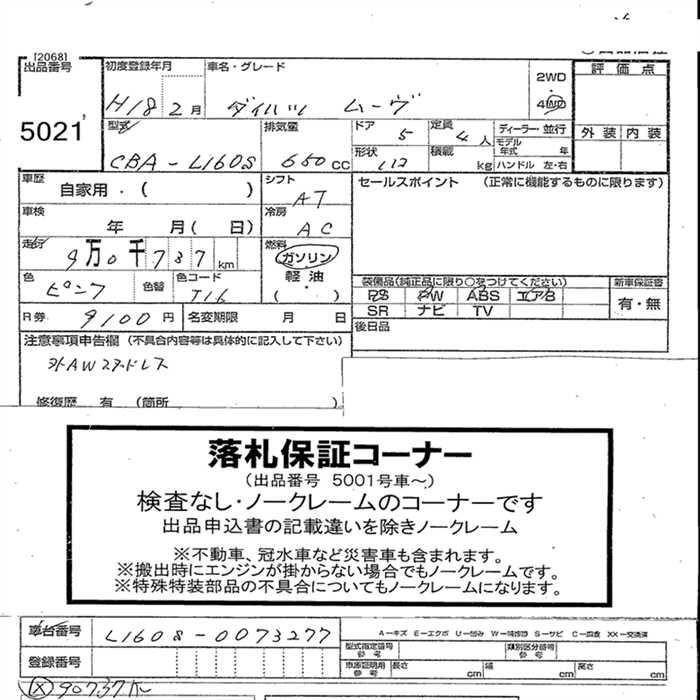 [2068]
出品番号 初度登録年月 車名・グレード 2WD 評価点
5021 H18 2月 ダイハツ ムーヴ 4WD
型式 排気量 ドア 5 定員 4人 ディーラー・並行 外装 内装
モデル年式 年
CBA-L160S 650CC 形状 積載 kg ハンドル 左・右
車歴 シフト セールスポイント (正常に機能するものに限ります)
自家用・( ) AT
車検 冷房
年 月( 日) AC
走行 燃料
9万0千737km ガソリン
色 色替 色コード 軽油 装備品(純正品に限り○をつけてください) 新車保証書
ピンク T16 ( ・ ) PS PW ABS エアB 有・無
SR ナビ TV
R券 9100円 名変期限 月 日
後日品
注意事項申告欄 (不具合内容等は具体的に記入して下さい)
外AWスタッドレス
修復歴 有 (箇所 )
落札保証コーナー
(出品番号 5001号車～)
検査なし・ノークレームのコーナーです
出品申込書の記載違いを除きノークレーム
※不動車、冠水車など災害車も含まれます。
※搬出時にエンジンが掛からない場合でもノークレームです。
※特殊特装部品の不具合についてもノークレームになります。
車台番号 L160S-0073277
A-キズ E-エクボ U-凹み W-補修跡 S-サビ C-腐食 XX-交換済
型式指定番号 参考 類別区分番号 参考
登録番号
車庫証明用 参考 長さ cm 幅 cm 高さ cm
90737K